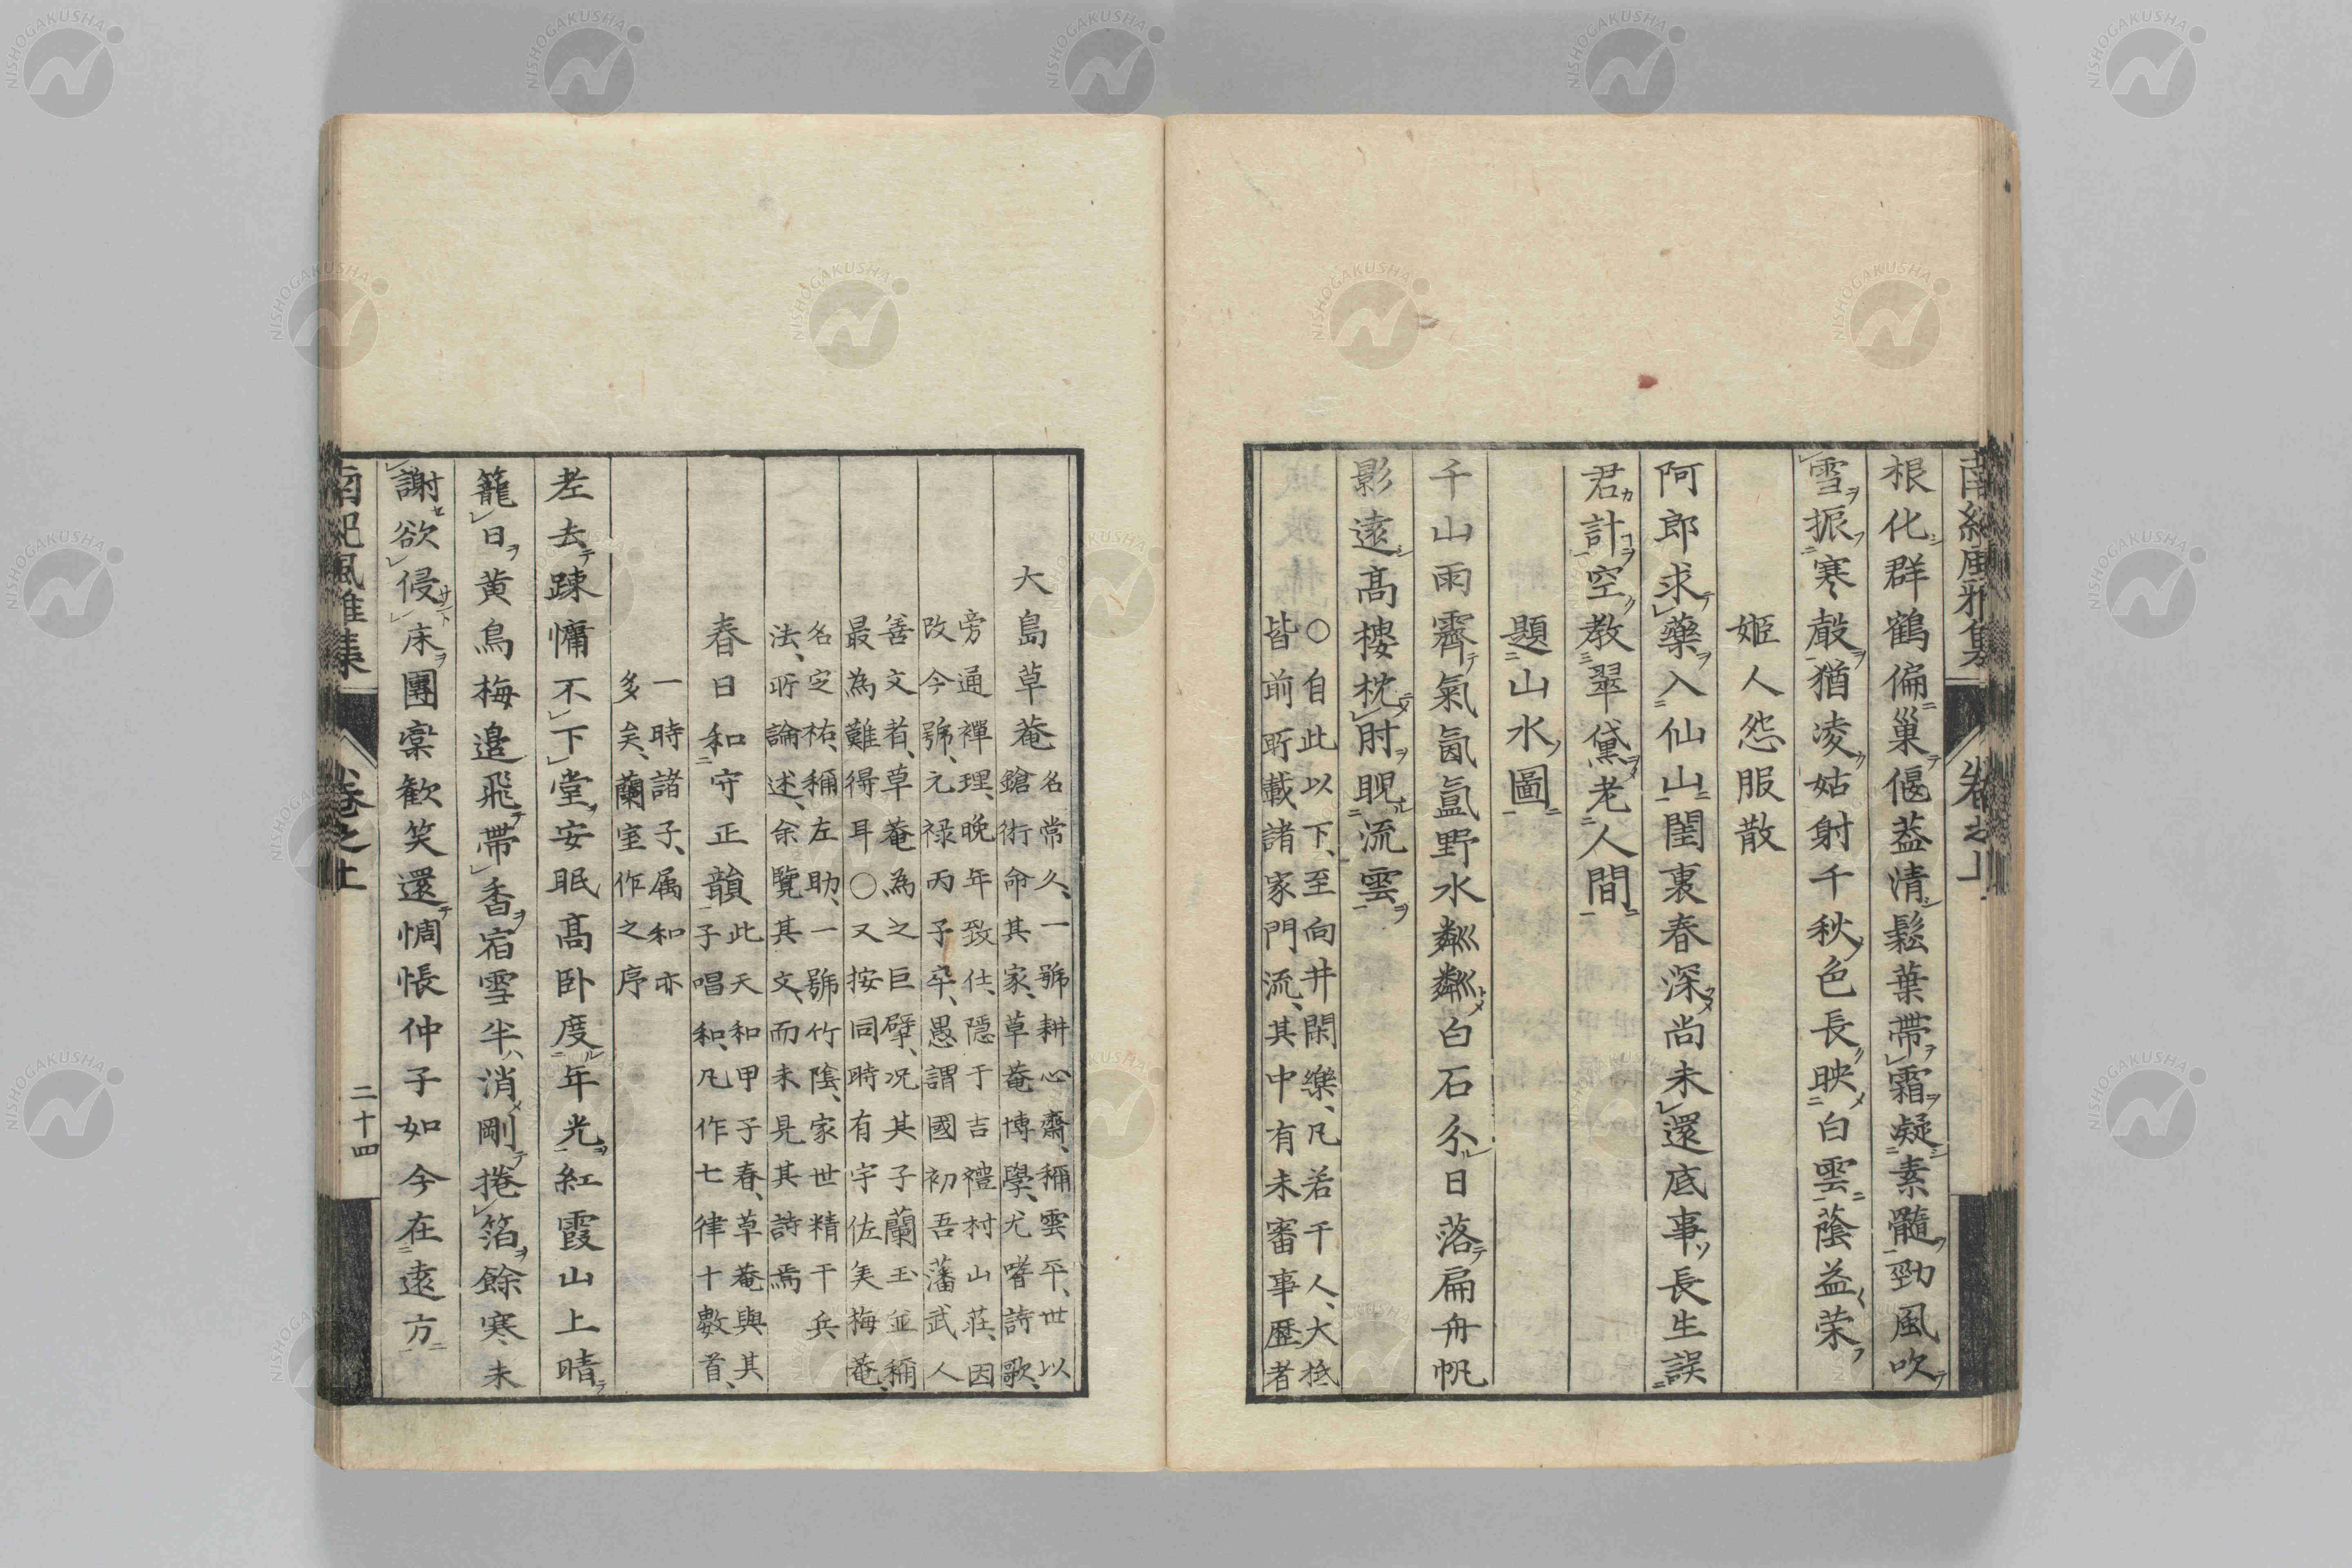 根化群鶴偏巢偃葢清鬆葉帶霜凝素髓勁風吹
雪振寒聲猶凌姑射千秋色長映白雲蔭益榮
姬人怨服散
阿郎求藥入仙山閨裏春深尚未還底事長生誤
君計空教翠黛老人間
題山水圖
千山雨霽氣氤氳野水粼粼白石分日落扁舟帆
影遠高樓枕肘睨流雲
○自此以下、至向井閑樂、凡若干人、大抵
皆前所載諸家門流、其中有未審事歷者
大島草菴名常久、一號耕心齋、稱雲平、世以
鎗術命其家、草菴博學、尤嗜詩歌、
旁通禪理、晩年致仕、隱于吉禮村山莊、因
改今號、元祿丙子卒、愚謂國初吾藩武人
善文者、草菴為之巨擘、况其子蘭玉並稱
最為難得耳○又按同時有宇佐美梅菴、
名定祐、稱左助、一號竹隂、家世精于兵
法、所論述、余覽其文、而未見其詩焉
春日和守正韻此天和甲子春、草菴與其
子唱和、凡作七律十數首、
一時諸子、属和亦
多矣、蘭室作之序
老去踈慵不下堂安眠高卧度年光紅霞山上晴
籠日黄鳥梅邉飛帶香宿雪半消剛捲箔餘寒未
謝欲侵床團欒歡笑還惆悵仲子如今在遠方
南紀風雅集
卷之上
二十四